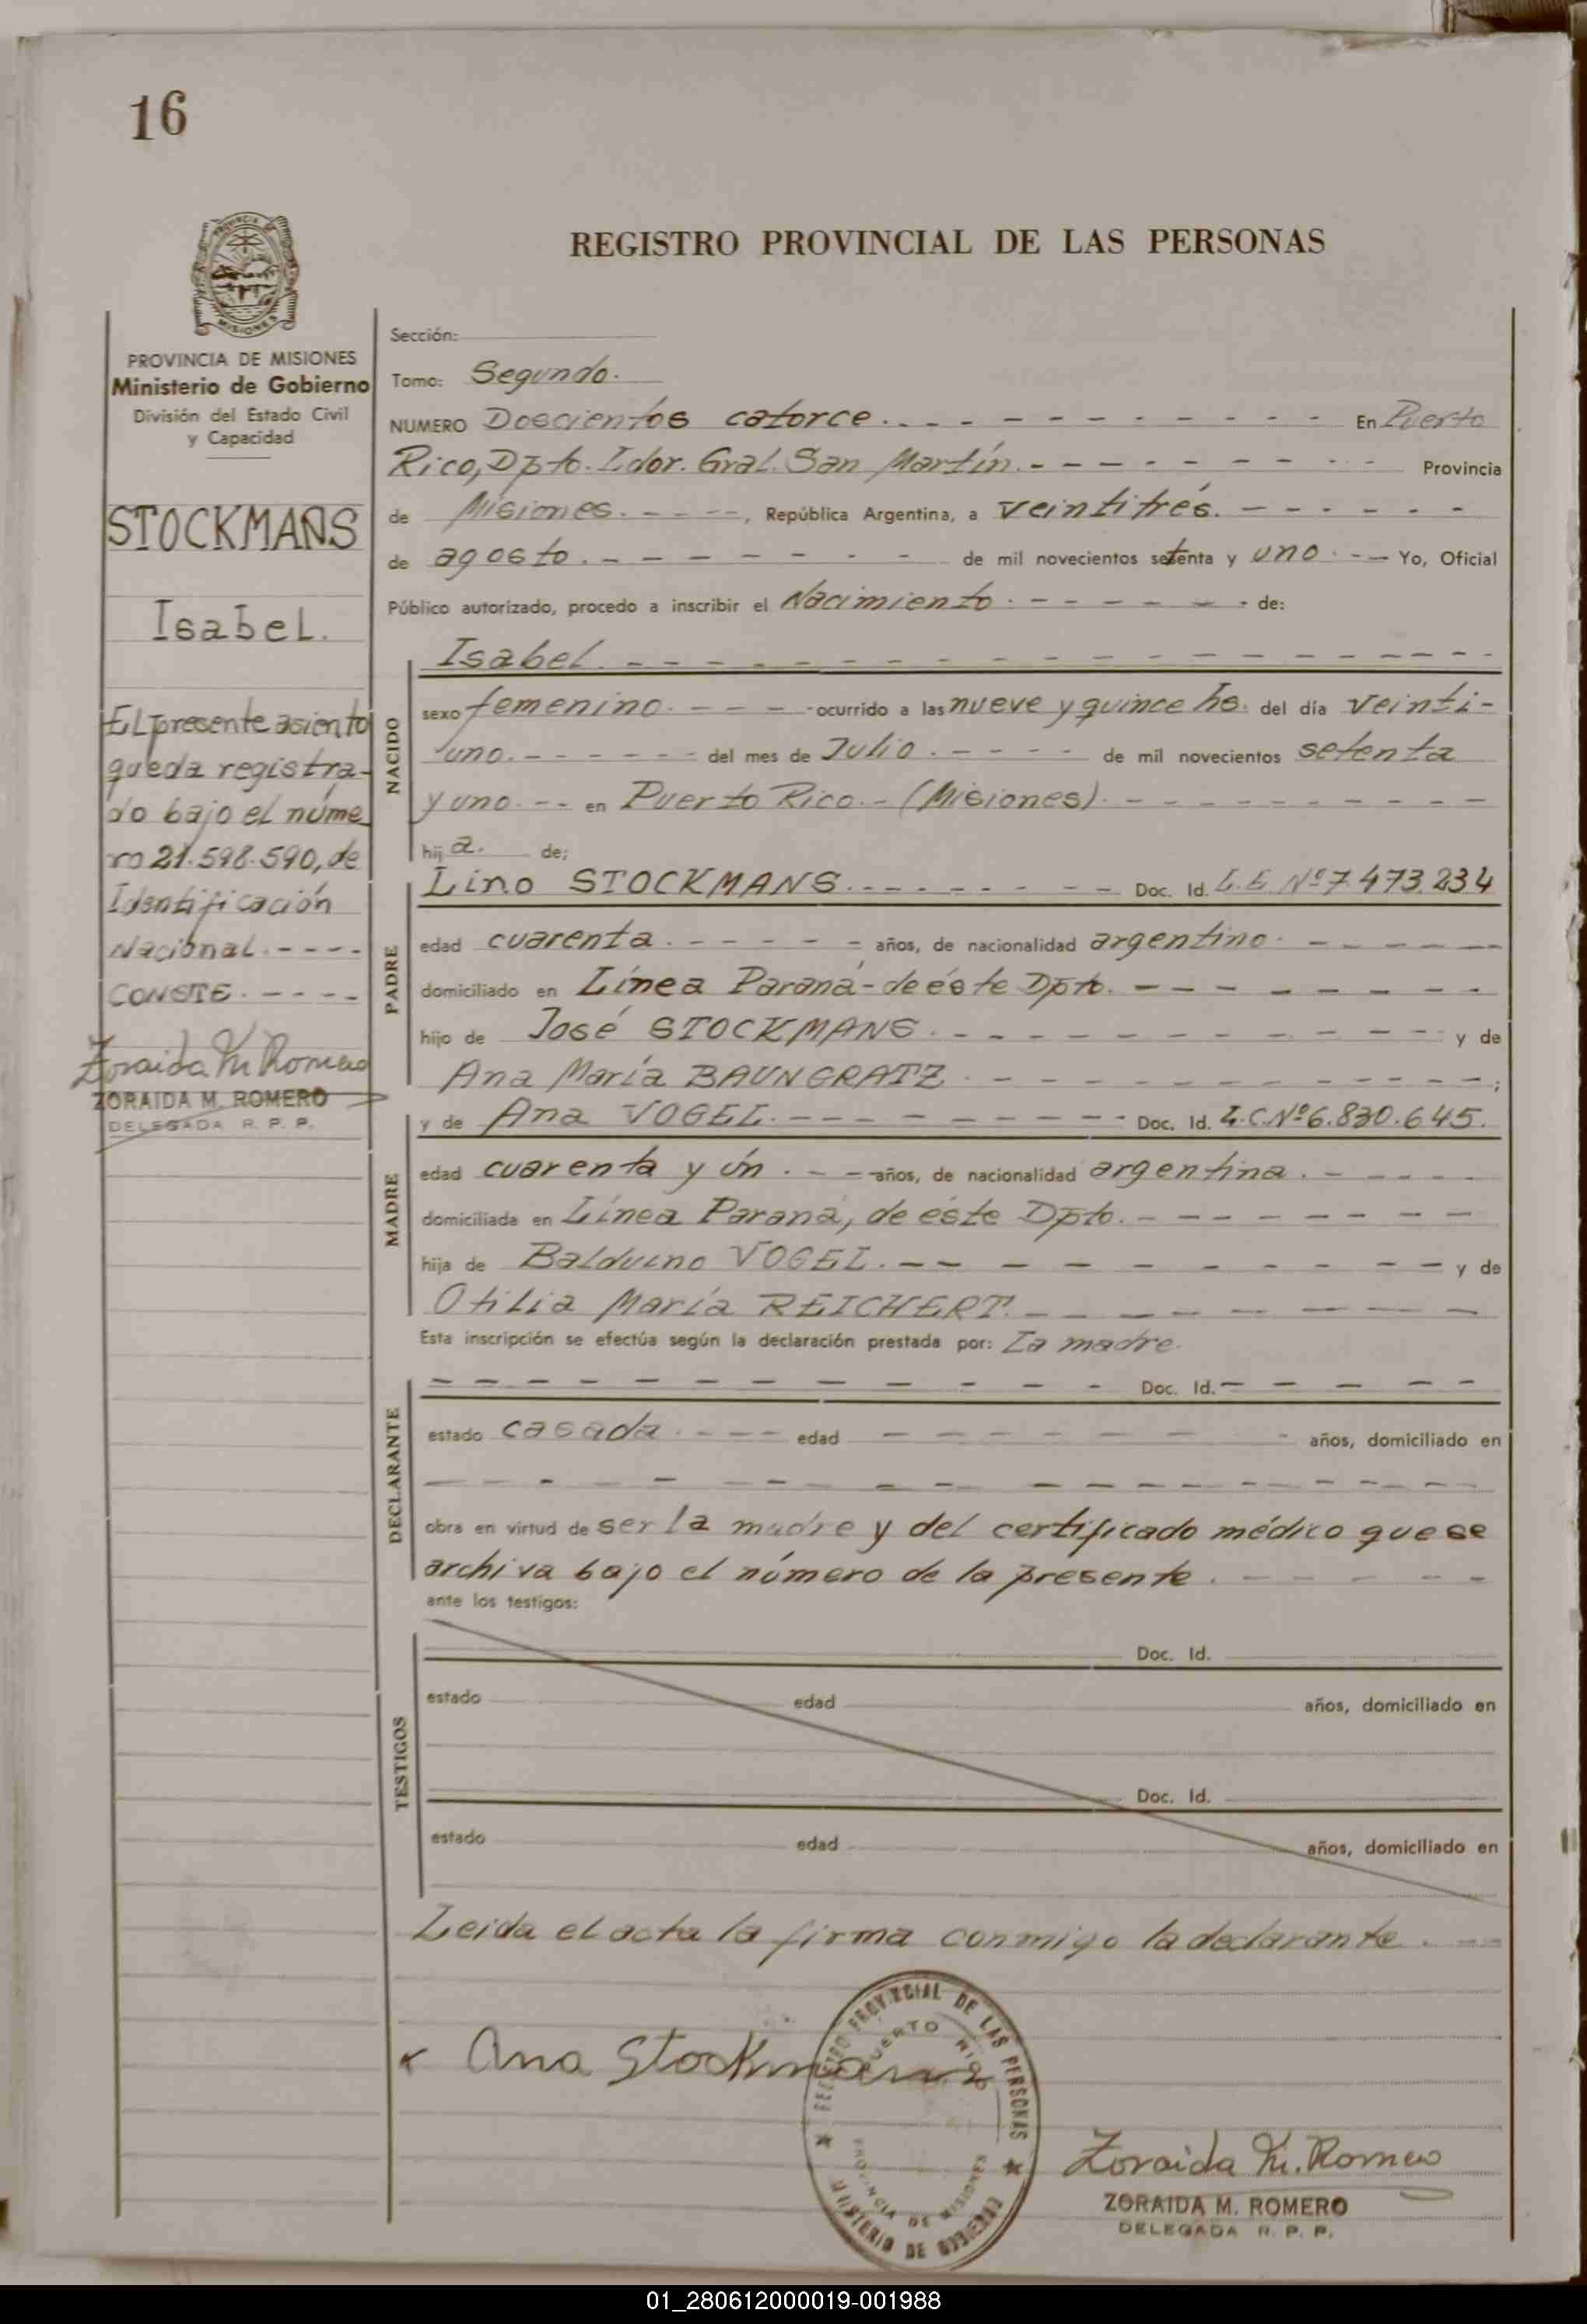 16
REGISTRO PROVINCIAL DE LAS PERSONAS
PROVINCIA DE MISIONES
Ministerio de Gobierno
División del Estado Civil
y Capacidad
STOCKMANS
Isabel.
El presente asiento
queda registra-
do bajo el núme
ro 21.598.590, de
Identificación
Nacional. - - - -
CONSTE. - - - -
Zoraida M. Romero
ZORAIDA M. ROMERO
DELEGADA R. P. P.
Sección:
Tomo: Segundo.
NUMERO Doscientos catorce. - - - - - - - - - En Puerto
Rico, Dpto. Ldor. Gral. San Martín. - - - - - - - - - Provincia
de Misiones. - - - -, República Argentina, a veintitrés. - - - - - -
de agosto. - - - - - - - - de mil novecientos setenta y uno. - - Yo, Oficial
Público autorizado, procedo a inscribir el Nacimiento. - - - - - - de:
NACIDO
Isabel. - - - - - - - - - - - - - - - - - - -
sexo femenino. - - - - ocurrido a las nueve y quince hs. del día veinti-
uno. - - - - - - del mes de Julio. - - - - de mil novecientos setenta
y uno. - - en Puerto Rico. - (Misiones). - - - - - - - - - -
hija. de;
PADRE
Lino STOCKMANS. - - - - - - - - Doc. Id. L.E. Nº 7.473.234
edad cuarenta. - - - - - años, de nacionalidad argentino. - - - - -
domiciliado en Línea Paraná - de éste Dpto. - - - - - - - -
hijo de José STOCKMANS. - - - - - - - - - - - - y de
Ana María BAUNGRATZ. - - - - - - - - - - - - ;
MADRE
y de Ana VOGEL. - - - - - - - - - Doc. Id. L.C. Nº 6.830.645.
edad cuarenta y ún. - - - años, de nacionalidad argentina. - - - - -
domiciliada en Línea Paraná, de éste Dpto. - - - - - - - -
hija de Balduino VOGEL. - - - - - - - - - - y de
Otilia María REICHERT. - - - - - - -
Esta inscripción se efectúa según la declaración prestada por: La madre.
DECLARANTE
- - - - - - - - - - - - - Doc. Id. - - - - - -
estado casada. - - - - edad - - - - - - - años, domiciliado en
- - - - - - - - - - - - - - - - - -
obra en virtud de ser la madre y del certificado médico que se
archiva bajo el número de la presente. - - - - -
ante los testigos:
TESTIGOS
Doc. Id.
estado edad años, domiciliado en
Doc. Id.
estado edad años, domiciliado en
Leida el acta la firma conmigo la declarante. - -
Ana Stockmans
REGISTRO PROVINCIAL DE LAS PERSONAS
PUERTO RICO
PROVINCIA DE MISIONES
MINISTERIO DE GOBIERNO
Zoraida M. Romero
ZORAIDA M. ROMERO
DELEGADA R. P. P.
01_280612000019-001988